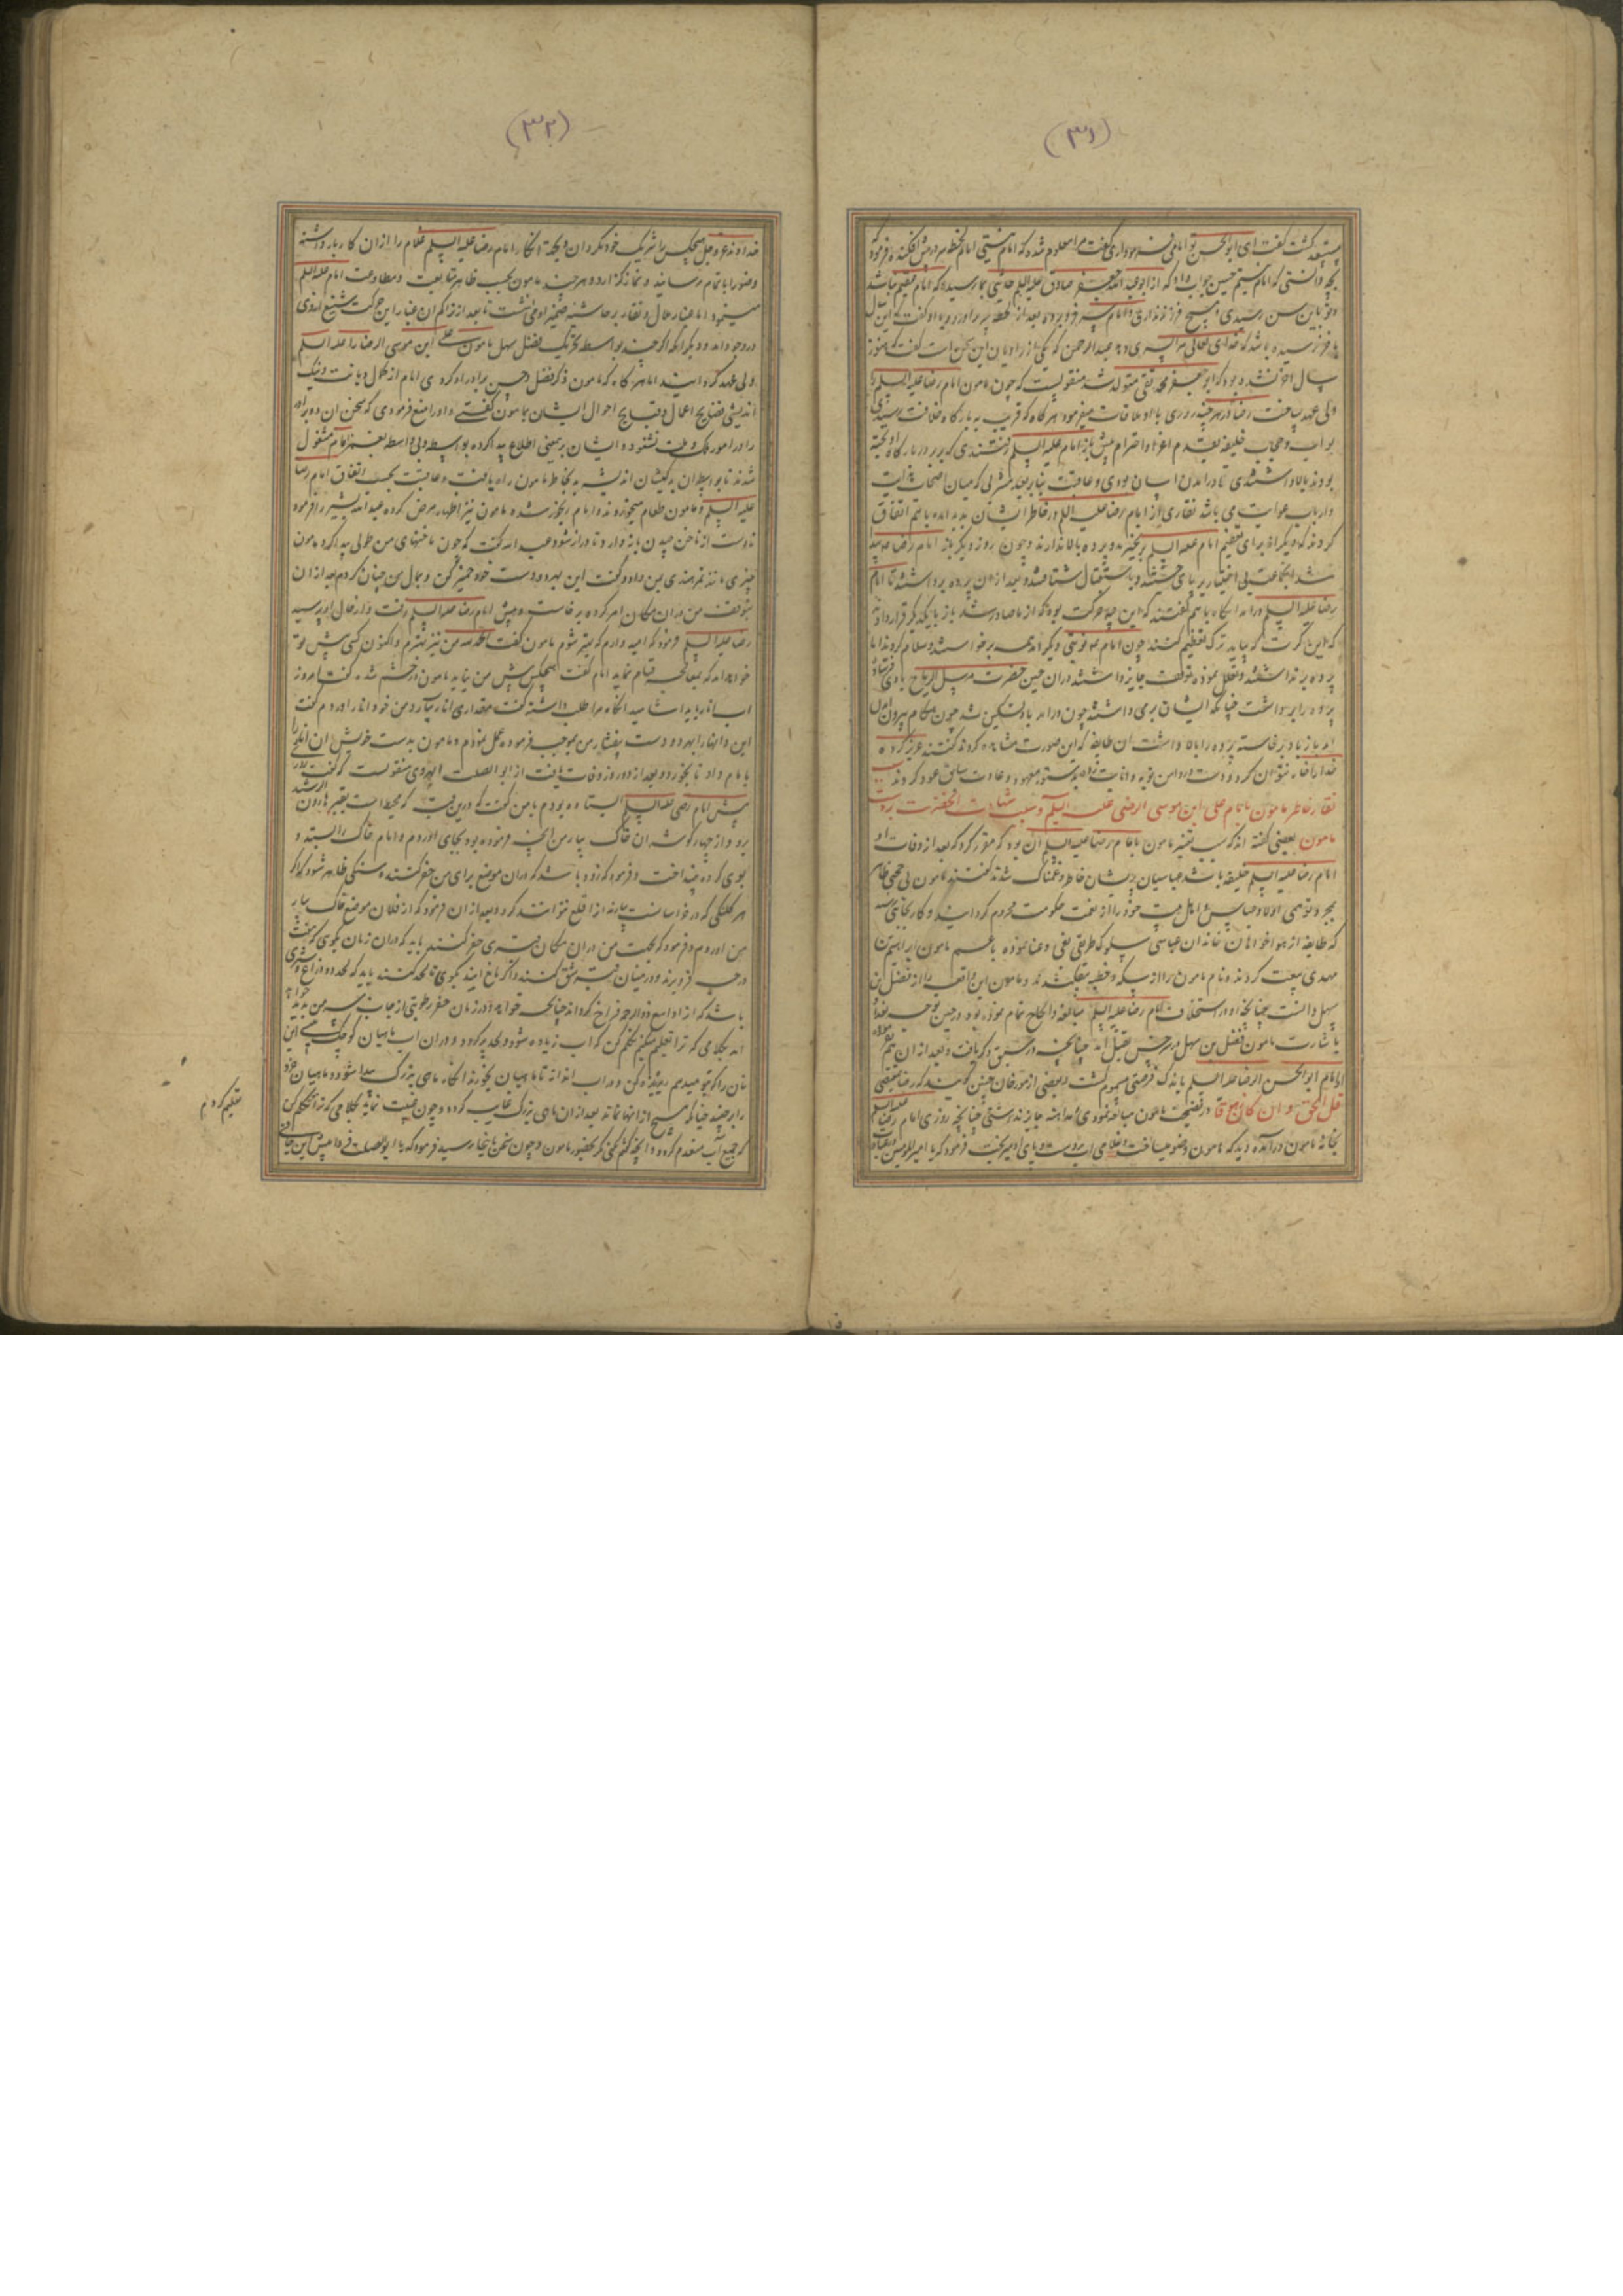 (۳۱)
گفت ای ابوالحسن تو امامی فرمود آری گفت مرا معلوم شده که امام نیستی امام لحظه سر در پیش افکنده فرمود
بچه دانستی که امام نیستم حسین جواب داد که از ابو عبد الله جعفر صادق علیه السلم حدیثی بما رسیده که امام عقیم نباشد
و تو باین سن رسیدی و هیچ فرزند نداری و امام سر فرو برده بعد از لحظه سر برآورد و با او گفت
خدای تعالی مرا پسری دهد عبد الرحمن که یکی از راویان این سخن است گفت که هنوز
سال آخر نشده بود که ابو جعفر محمد تقی متولد شد منقولست که چون مامون امام رضا علیه السلم را
ولی عهد ساخت رضا در هر چند روزی با او ملاقات میفرمود هر گاه که قریب ببارگاه خلافت رسیدی
بواب و حجاب خلیفه بقدم اعزاز و احترام پیش باز امام علیه السلم رفتندی که بر در بارگاه آویخته
بودند بالا داشتندی تا در آمدن ایشان بودی و عاقبت بنابر بعد مشربی که میان اصحاب هدایت
و ارباب غوایت می باشد نقاری از امام رضا علیه السلم در خاطر ایشان پدید آمده باهم اتفاق
کردند که دیگر از برای تعظیم امام علیه السلم برنخیزند و پرده بالا ندارند و چون روز دیگر باز امام رضا پیدا
شد آنجماعت بی اختیار بر پای جستند و باستقبال شتافتند و بعد از آن پرده برداشتند تا امام
رضا علیه السلم درآمد آنگاه باهم گفتند که این چه حرکت بود که از ما صادر شد باز با یکدیگر قرار دادند
که این کرت که بیاید ترک تعظیم کنند چون امام دیگر آمد همه برخواستند و سلام کردند اما
پرده برنداشتند و تعلل نموده توقف جایز داشتند در آن حین حضرت مرسل الریاح بادی فرستاد
پرده را برداشت چنانکه ایشان برمی داشتند چون درآمد باد تسکین شد چون هنگام بیرون
آمد باز باد برخاسته پرده را بالا داشت آن طایفه که این صورت مشاهده کردند گفتند عزیز کرده
خدا را خوار نتوان کرد و دست در دامن توبه و انابت زده بدستور معهود و عادت سابق عود کردند
نقار خاطر مامون با امام علی ابن موسی الرضی علیه السلم و سبب شهادت آنحضرت بر دست
مامون بعضی گفته اند که سبب تغیر مامون با امام رضا علیه السلم آن بود که مقرر کرد که بعد از وفات او
امام رضا علیه السلم خلیفه باشد عباسیان پریشان خاطر و غمناک شدند گفتند مامون بی حجتی ظاهر
بمجرد توهمی اولاد عباس و اهل بیت خود را از نعمت حکومت محروم گردانید و کار بجائی رسید
که طایفه از هواخواهان خاندان عباسی سلوک طریق بغی و عناد نموده با عم مامون ابراهیم بن
مهدی بیعت کردند و نام مامون را از سکه و خطبه بیفکندند و مامون این واقعه را از فضل بن
سهل دانست چنانچه او در استخلاف امام رضا علیه السلم مبالغه و الحاح تمام نموده بود در حین توجه ببغداد
باشارت مامون فضل بن سهل در سرخس بقتل آمد چنانچه سبق ذکر یافت و بعد از آن
امام ابو الحسن الرضا علیه السلم باندک فرصتی مسموم گشت و بعضی از مورخان چنین گویند که رضا بمقتضی
قل الحق و ان کان مرا در نصیحت مامون مبالغه نمودی و مداهنه جایز نداشتی چنانچه روزی امام رضا علیه السلم
بخانه مامون درآمده دید که مامون وضو میساخت و غلامی آب بر دست و پای او میریخت فرمود که یا امیر المومنین
(۳۲)
خداوند عز و جل هیچکس را شریک خود مگردان آنگاه امام رضا علیه السلم غلام را از آن کار باز داشته
وضو را باتمام رسانید و نماز گزارد و هر چند مامون بحسب ظاهر متابعت و مطاوعت امام علیه السلم
مینمود اما غبار ملال و نقار بر حاشیه ضمیر او می نشست تا بعد از تراکم آن غبار این حرکت شنیع از وی
در وجود آمد و دیگر آنکه اگر چند بواسطه تحریک فضل سهل مامون علی ابن موسی الرضا را علیه السلم
ولی عهد گردانید اما هر گاه که مامون ذکر فضل و حسن برادر او کردی امام از کمال دیانت و نیک
اندیشی فضایح اعمال و قبایح احوال ایشان بمامون گفتی و او را منع فرمودی که سخن آن دو برادر
را در امور ملک و ملت نشنود و ایشان بر معنی اطلاع پیدا کرده بوسیله و بی واسطه بغمز امام مشغول
شدند تا بواسطه آن بدکیشان اندیشه بد بخاطر مامون راه یافت و عاقبت بحسب اتفاق امام رضا
علیه السلم و مامون طعام میخوردند و امام رنجور شده مامون نیز اظهار مرض کرده عبد الله بشیر را فرمود
تا دست از ناخن چیدن باز دارد تا دراز شود عبد الله گفت که چون ناخنهای من طولی پیدا کرد مامون
چیزی مانند تمر هندی بمن داد و گفت این بهر دو دست خود خمیر کن و بحال من چنان کردم بعد از آن
بتوقف من در آن مکان امر کرده برخاست و پیش امام رضا علیه السلم رفت و از حال او پرسید
رضا علیه السلم فرمود که امید دارم که بهتر شوم مامون گفت الحمد لله من نیز بهترم و اکنون کسی پیش تو
خواهد آمد که بمعالجه قیام نماید امام گفت هیچکس پیش من نیاید مامون در خشم شد گفت امروز
آب انار باید آشامید آنگاه مرا طلب داشته گفت مقداری انار بیار من خود انار آوردم گفت
این دانها را بهر دو دست بیفشار من بموجب فرموده عمل نمودم و مامون بدست خویش آن آب را
بامام داد تا بخورد و بعد از دو روز وفات یافت از ابو الصلت الهروی منقولست که گفت در
پیش امام رضی علیه السلم ایستاده بودم با من گفت که درین قبه که محیط است بقبر هارون الرشید
برو و از چهار گوشه آن خاک بیار من آنچه فرموده بود بجای آوردم و امام خاک را ستد و
بوی کرده بینداخت و فرمود که زود باشد که در آن موضع برای من حفر کنند و سنگی ظاهر شود که اگر
هر کلنگی که در خراسانست بیارند آنرا قلع نتوانند کرد و بعد از آن فرمود که از فلان موضع خاک بیار
من آوردم و فرمود که بجهت من در آن مکان قبری حفر کنند باید که در آن زمان بگوی که هفت
درجه فرو برند و در میان قبر شق کنند و اگر مانع آیند بگوی تا لحد کنند باید که لحد دو ذراع و شبری
باشد که آنرا واسع ذو الرحمه فراخ گرداند چنانچه خواهد و در زمان حفر رطوبتی از جانب سر من پدید خواهد
آمد بکلامی که ترا تعلیم میکنم تکلم کن که آب زیاده شود و لحد پر گردد و در آن آب ماهیان کوچک بینی این
نان را که بتو میدهم ریزه کن و در آب انداز تا ماهیان بخورند آنگاه ماهی بزرگ پیدا شود و ماهیان خرد
را برچیند چنانکه هیچ از آنها نماند بعد از آن ماهی بزرگ غایب گردد و چون غیبت نماید بکلامی که ترا تعلیم کردم تکلم کن
که جمیع آب منعدم گردد و آنچه گفتم نکنی مگر بحضور مامون و چون سخن باینجا رسید فرمود که یا ابو الصلت فردا پیش این
تعلیم کردم